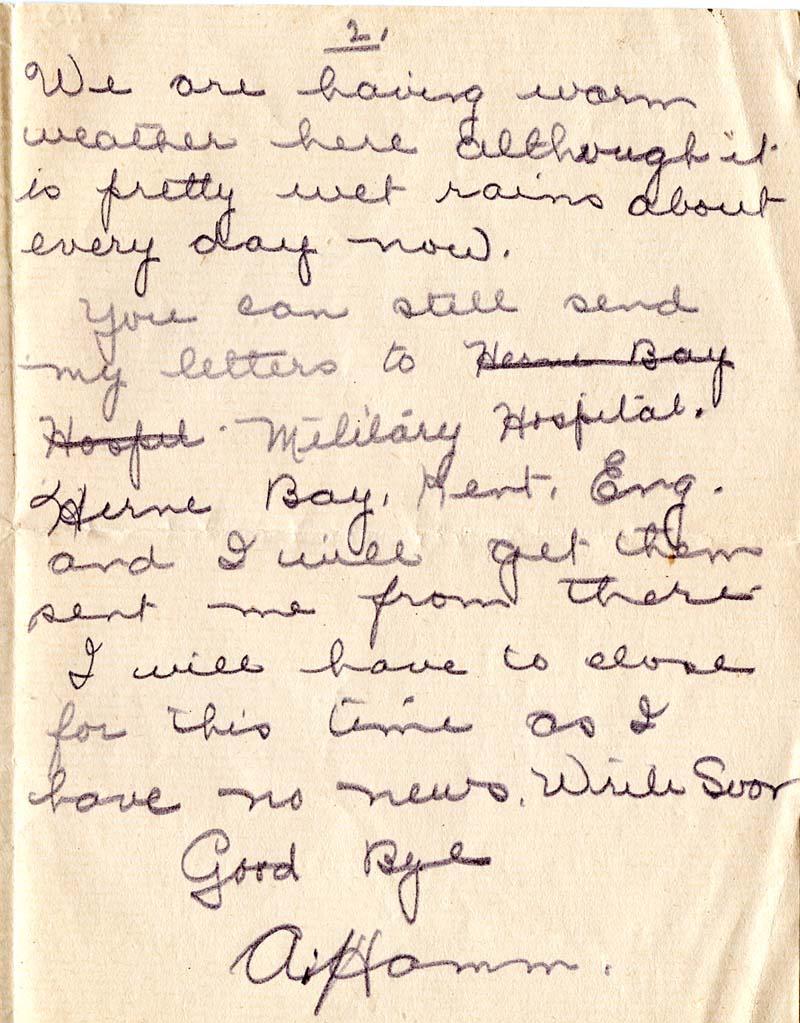 2.
We are having warm
weather here although it
is pretty wet rains about
every day now.
You can still send
my letters to Herne Bay
Hospit Military Hospital.
Herne Bay, Kent, Eng.
and I will get them
sent me from there
I will have to close
for this time as I
have no news. Write Soon
Good Bye
A. Hamm.